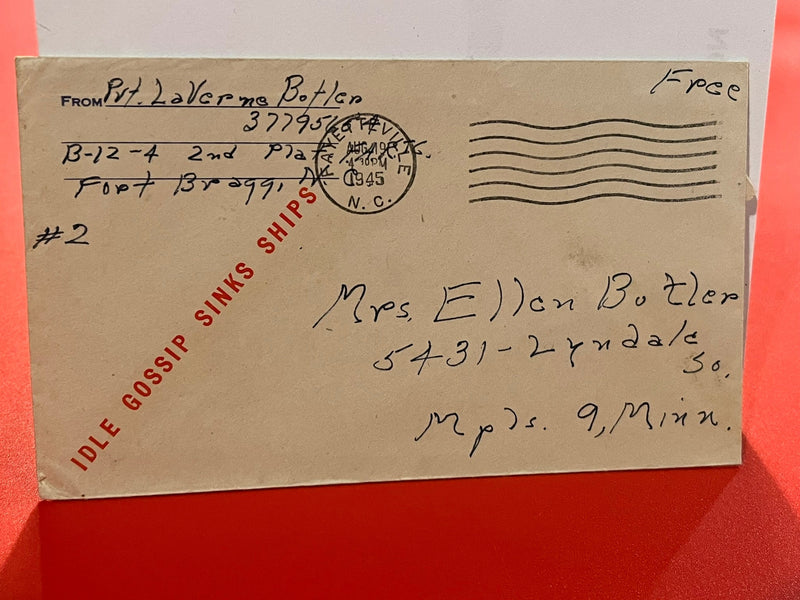 FROM Pvt. LaVerne Botler
B-12-4 2nd Plat
Fort Bragg, N
#2
FAYETTEVILLE
AUG 19
4 30PM
1945
N. C.
Free
IDLE GOSSIP SINKS SHIPS
Mrs. Ellen Botler
5431-Lyndale
So.
Mpls. 9, Minn.